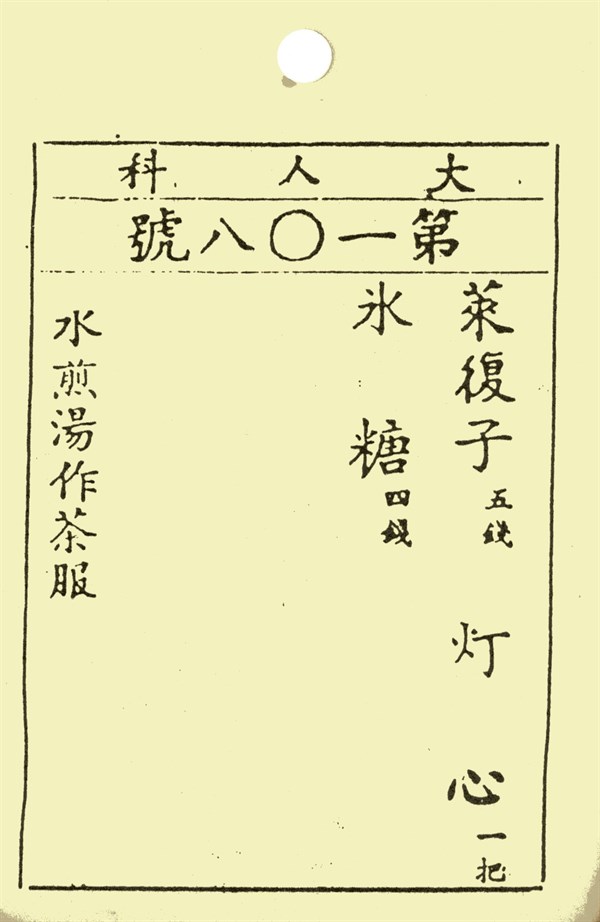 大人科
第一〇八號
萊復子五錢 灯心一把
氷糖四錢
水煎湯作茶服